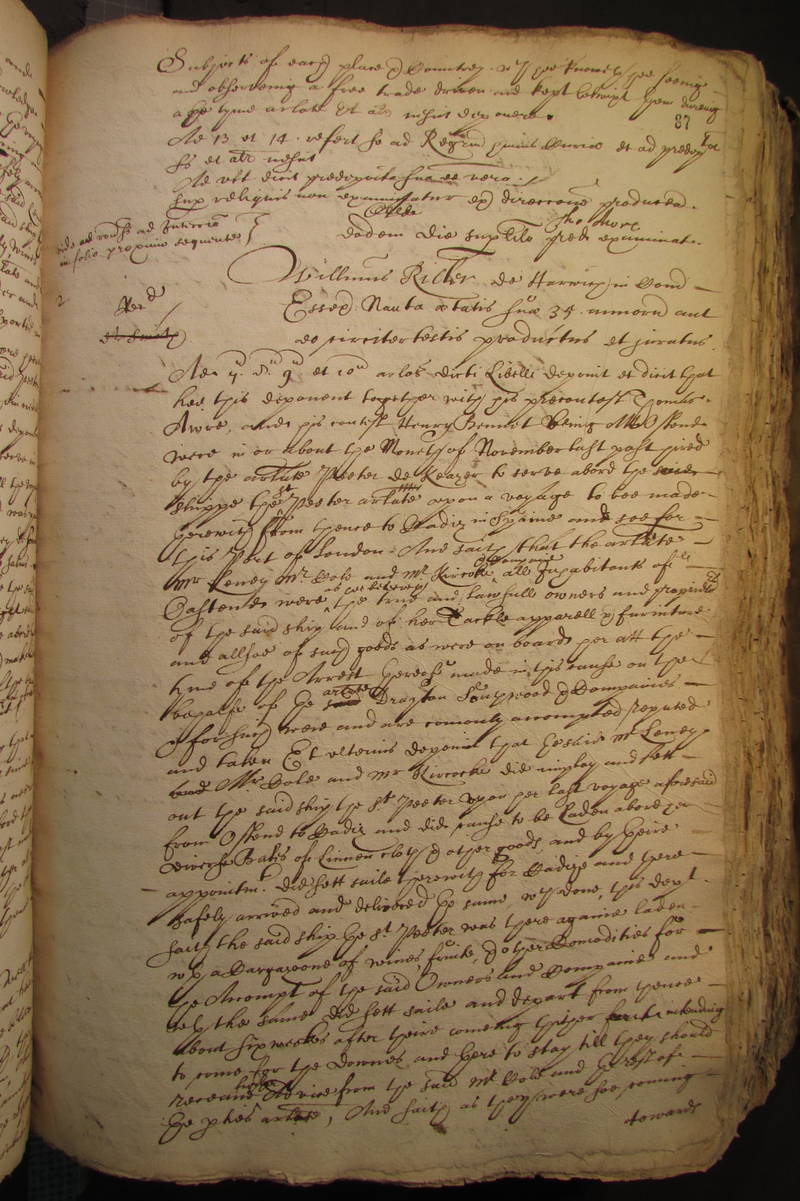 Subjects of each place & Countrey. wch hee knoweth hee seeing
and observing a free trade driven and kept betwixt them during
all the tyme arlate Et alr nescit deponere.
87
Ad 13 et 14. refert se ad Regrum huius Curiæ et ad predeposita
sua et alr nescit
Ad ult dicit predeposita sua esse vera.
Sup reliquis non examinatur ex direccone producen.
Tho: Awre
Eodem die sup Lilo pred examinat.
vide ad
in folio proximo sequente
2
Willimus Ritter de Harwich in Com
Essex Nauta ætatis suæ 34. annorum aut
eo circiter testis productus et juratus.
Rp. 2
Ad 7. 8um 9um et 10um arlos dicti Libelli deponit et dicit that
hee this deponent together with his precontest Thomas
Awre, and his contest Henry Bennet being att Ostend
were in or about the Moneth of November last past hired
by the arlate Peeter de Keazer to serve abord the
shippe the St Peeter arlate upon a voyage to bee made
therewith from thence to Cadiz in Spaine and soe for
this Port of London. And saith that the arlate
Mr Leney Mr Cole and Mr Kircoke & Companie all Inhabitants of
Oastend were as hee beleeveth the true and lawfull owners and proprietrs
of the said ship and of her Tackle apparell & furniture
and allsoe of such goods as were on board her att the
tyme of the Arrest thereof made in this cause on the
behalfe of the arlate Drayton Southwood & Companie
& for such were and are comonly accompted reputed
and taken Et ulterius deponit that the said Mr Leney
Mr Cole and Mr Kircocke did imploy and sett
out the said ship the St Peeter upon her last voyage aforesaid
from Ostend to Cadiz and did cause to be laden abord her
diverse Bales of Linnen cloth & other goods, and by theire
appointmt. did sett saile therewith for Cadize and there
safely arrived and delivered the same, wch done, this dept
saith the said ship the St Peeter was there againe laden
wth a Cargazoone of wines, fruite, & other Comodities for
the Accompt of the said Owners and Companie and
wth the same did sett saile and depart from thence
about six weekes after theire comeing thither intending
to come for the Downes and there to stay till they should
receave Advice from the said Mr Cole and the rest of
the arlate, And saith as they were soe coming
towards